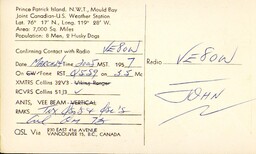 Prince Patrick Island, N.W.T., Mould Bay
Joint Canadian-U.S. Weather Station
Lat. 76° 17' N., Long. 119° 28' W.
Area: 7,000 Sq. Miles
Population: 8 Men, 8 Husky Dogs
Confirming Contact with Radio VE8OW
Date March MST 1957
On CW Fone RST on 3.5 Mc
XMTRS Collins 32V3 - Viking Ranger
RCVRS Collins 51J3
ANTS, VEE BEAM - VERTICAL
RMKS
QSL Via 250 EAST 41st AVENUE
VANCOUVER 15, B.C., CANADA
Radio VE8OW
JOHN